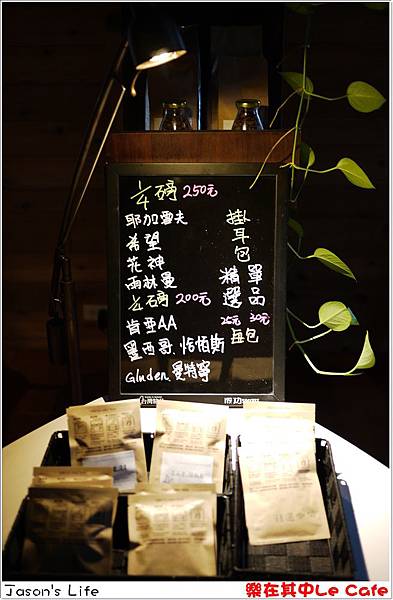 ¼磅 250元
耶加雪夫
希望
花神
雨林曼
¼磅 200元
肯亞AA
墨西哥.恰帕斯
Gluden.曼特寧
掛耳包
精選 單品
25元 30元
每包
Jason's Life
樂在其中Le Cafe